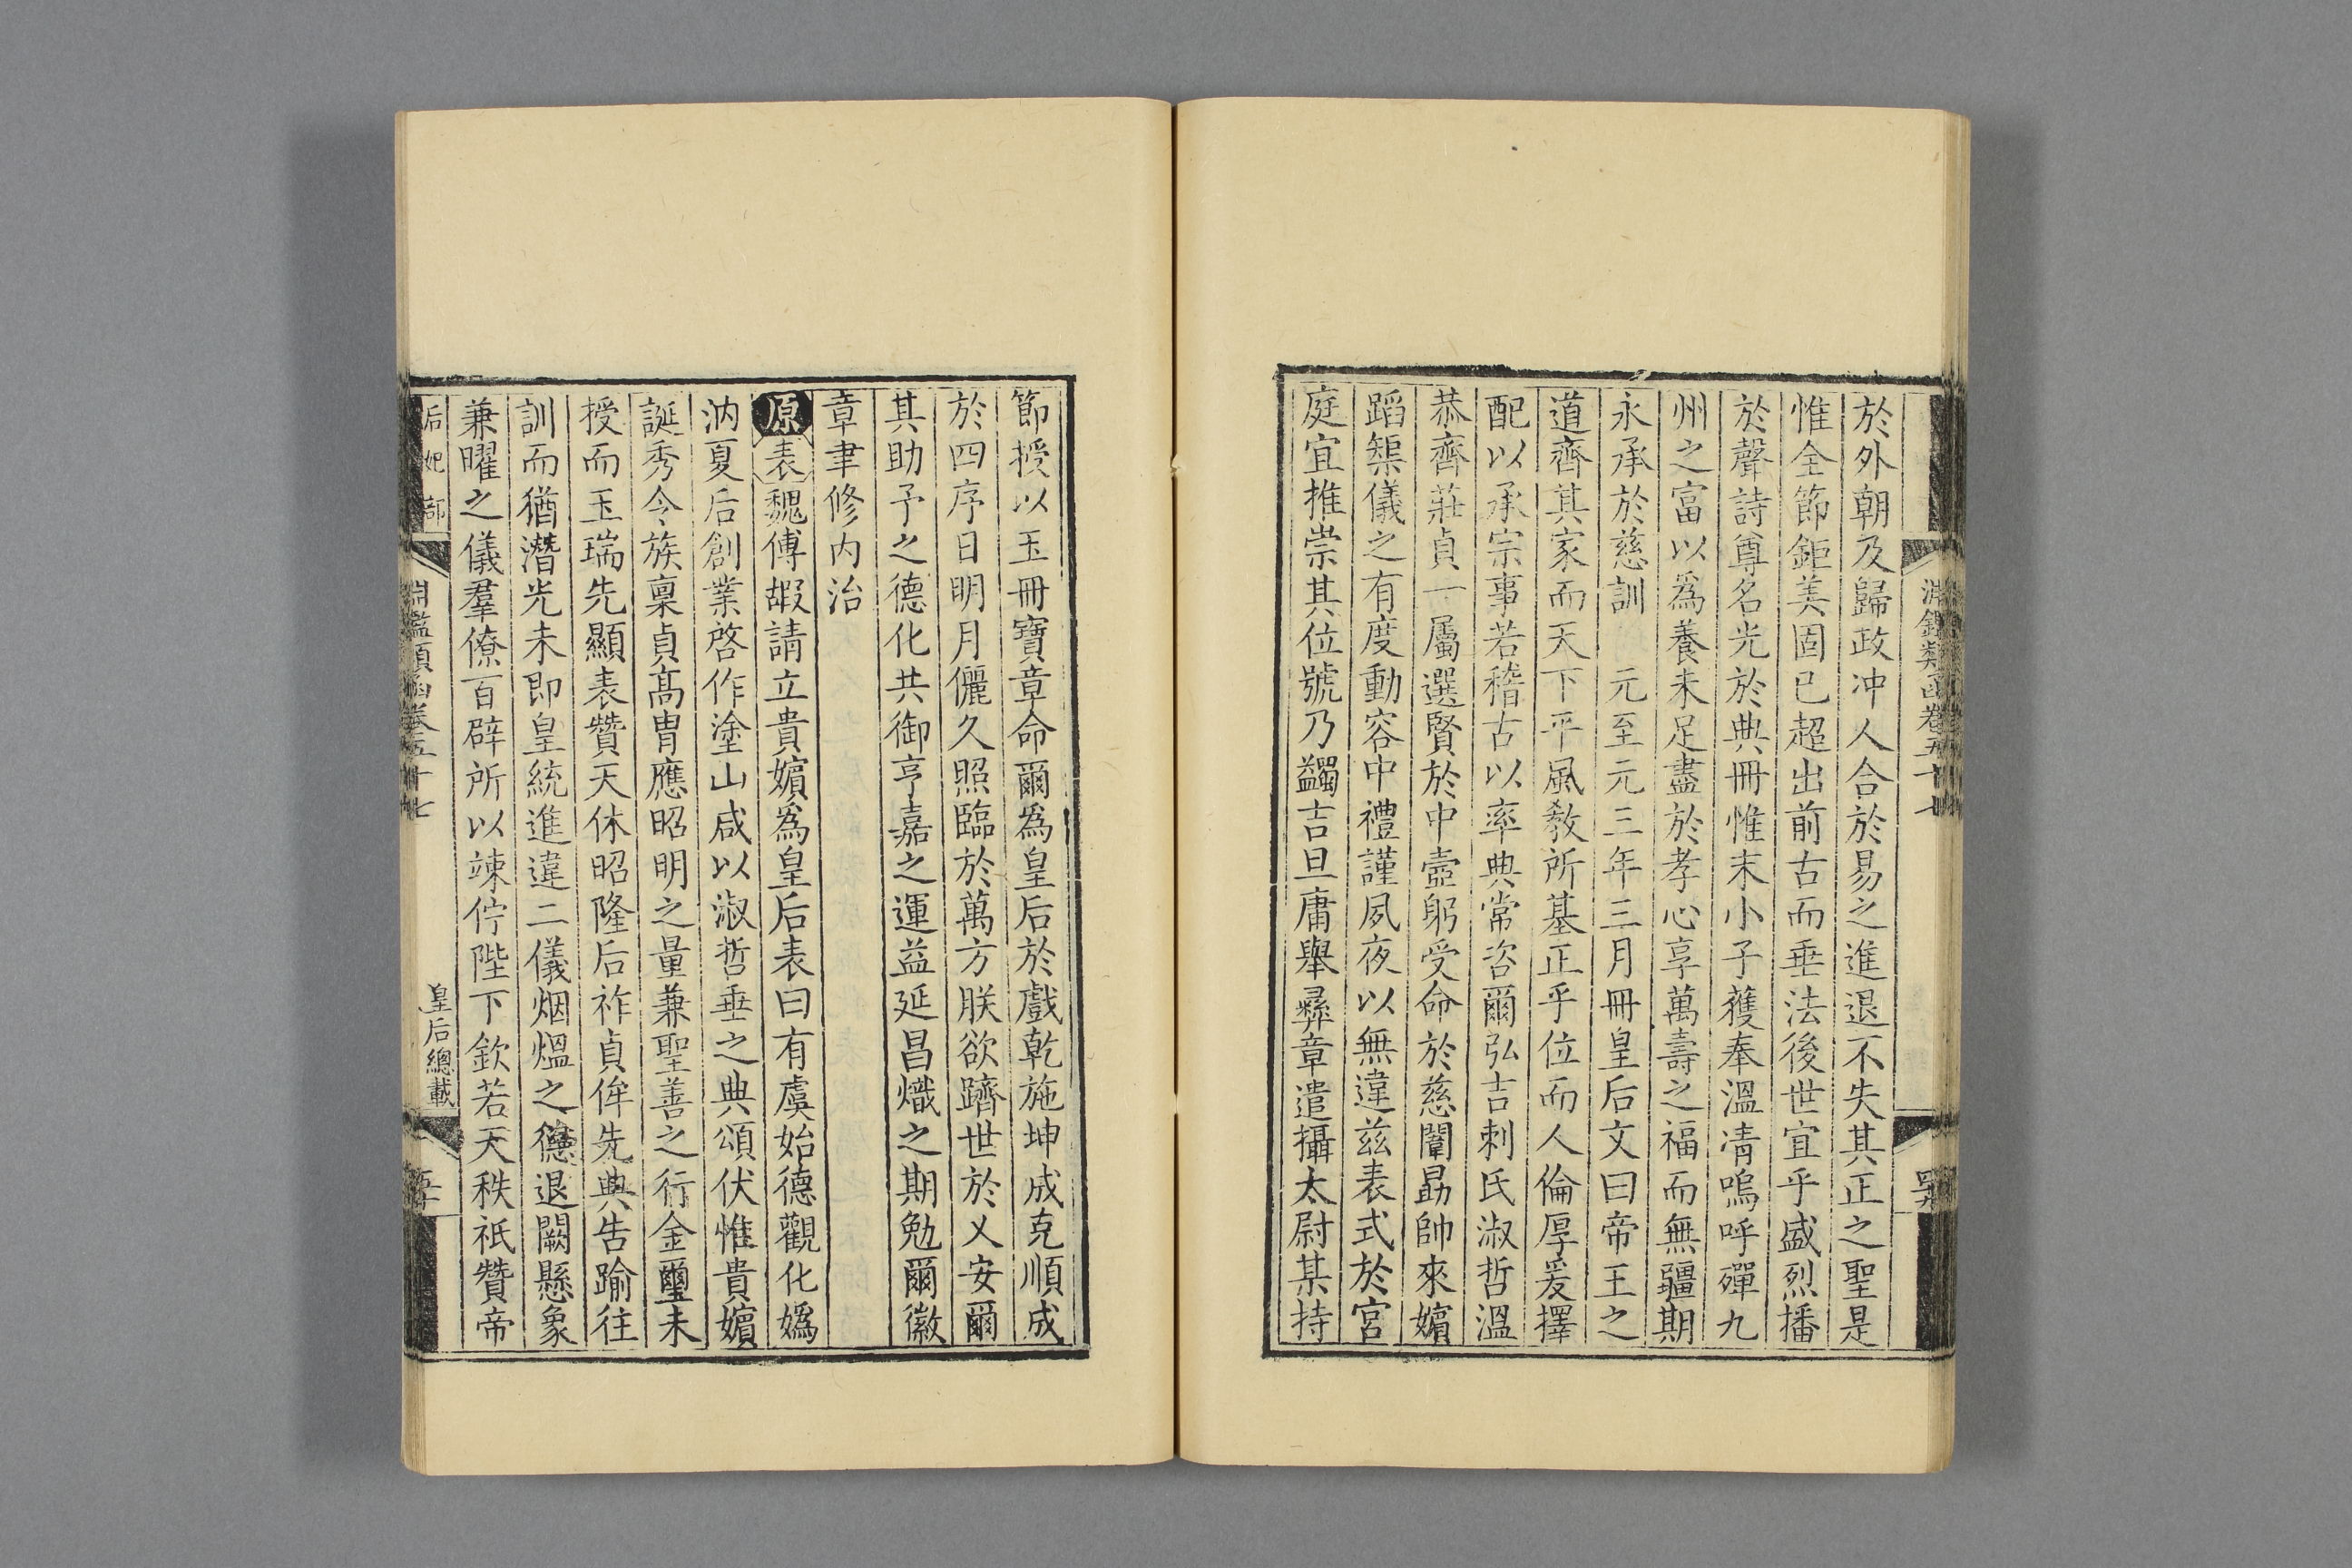 淵鑑類函卷五十七
於外朝及歸政冲人合於易之進退不失其正之聖是
惟全節鉅美固已超出前古而垂法後世宜乎盛烈播
於聲詩尊名光於典冊惟末小子蒦奉溫凊嗚呼殫九
州之富以爲養未足盡於孝心享萬壽之福而無疆期
永承於慈訓　元至元三年三月冊皇后文曰帝王之
道齊其家而天下平風敎所基正乎位而人倫厚爰擇
配以承宗事若稽古以率典常咨爾弘吉剌氏淑哲溫
恭齊莊貞一屬選賢於中壼躬受命於慈闈勗帥來嬪
蹈榘儀之有度動容中禮謹夙夜以無違茲表式於宮
庭宜推崇其位號乃蠲吉旦庸舉彝章遣攝太尉某持
節授以玉冊寶章命爾爲皇后於戲乾施坤成克順成
於四序日明月儷久照臨於萬方朕欲躋世於乂安爾
其助予之德化共御亨嘉之運益延昌熾之期勉爾徽
章聿修内治
原表魏傅嘏請立貴嬪爲皇后表曰有虞始德觀化嬀
汭夏后創業啓作塗山咸以淑哲垂之典頌伏惟貴嬪
誕秀令族稟貞高胄應昭明之量兼聖善之行金璽未
授而玉瑞先顯表贊天休昭隆后祚貞侔先典告踰往
訓而猶潛光未即皇統進違二儀烟熅之德退闕懸象
兼曜之儀羣僚百辟所以竦佇陛下欽若天秩祇贊帝
后妃部
淵鑑類函卷五十七
皇后總載